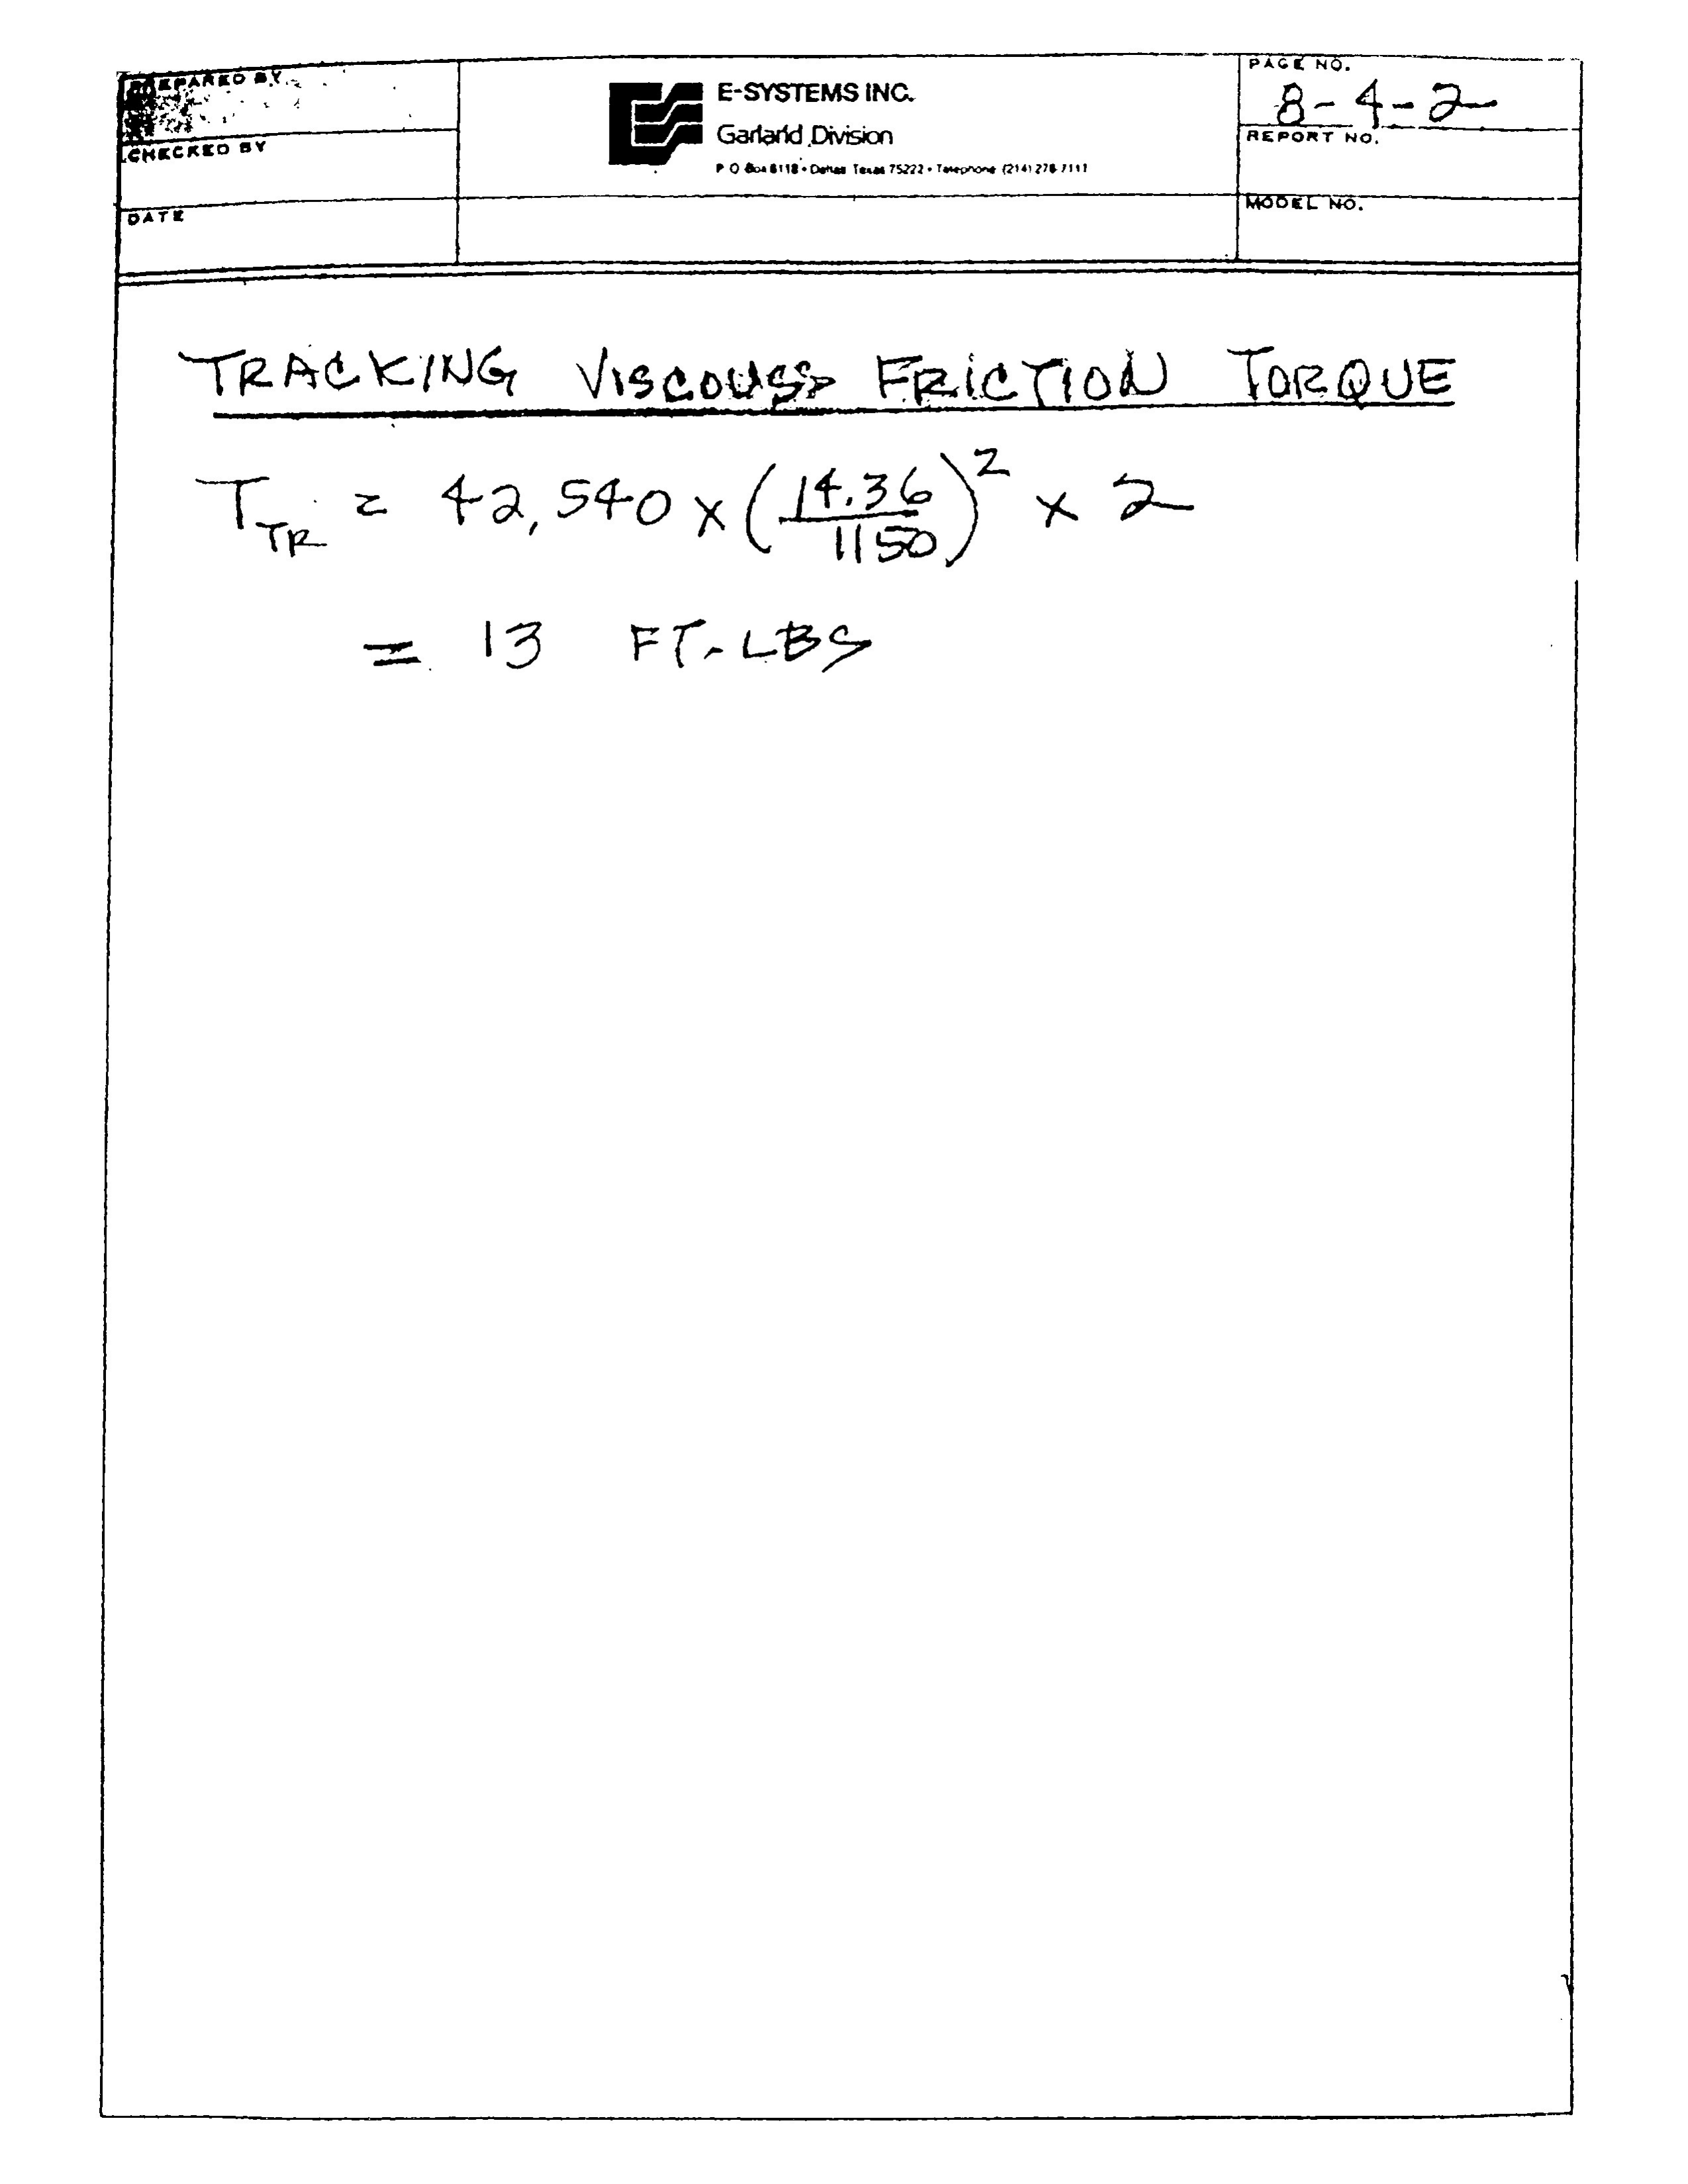 PREPARED BY
CHECKED BY
DATE
E-SYSTEMS INC.
Garland Division
P O Box 6118 • Dallas Texas 75222 • Telephone (214) 276-7111
PAGE NO.
8-4-2
REPORT NO.
MODEL NO.
TRACKING VISCOUS FRICTION TORQUE
T_TR = 42,540 x (14.36/1150)^2 x 2
= 13 FT-LBS